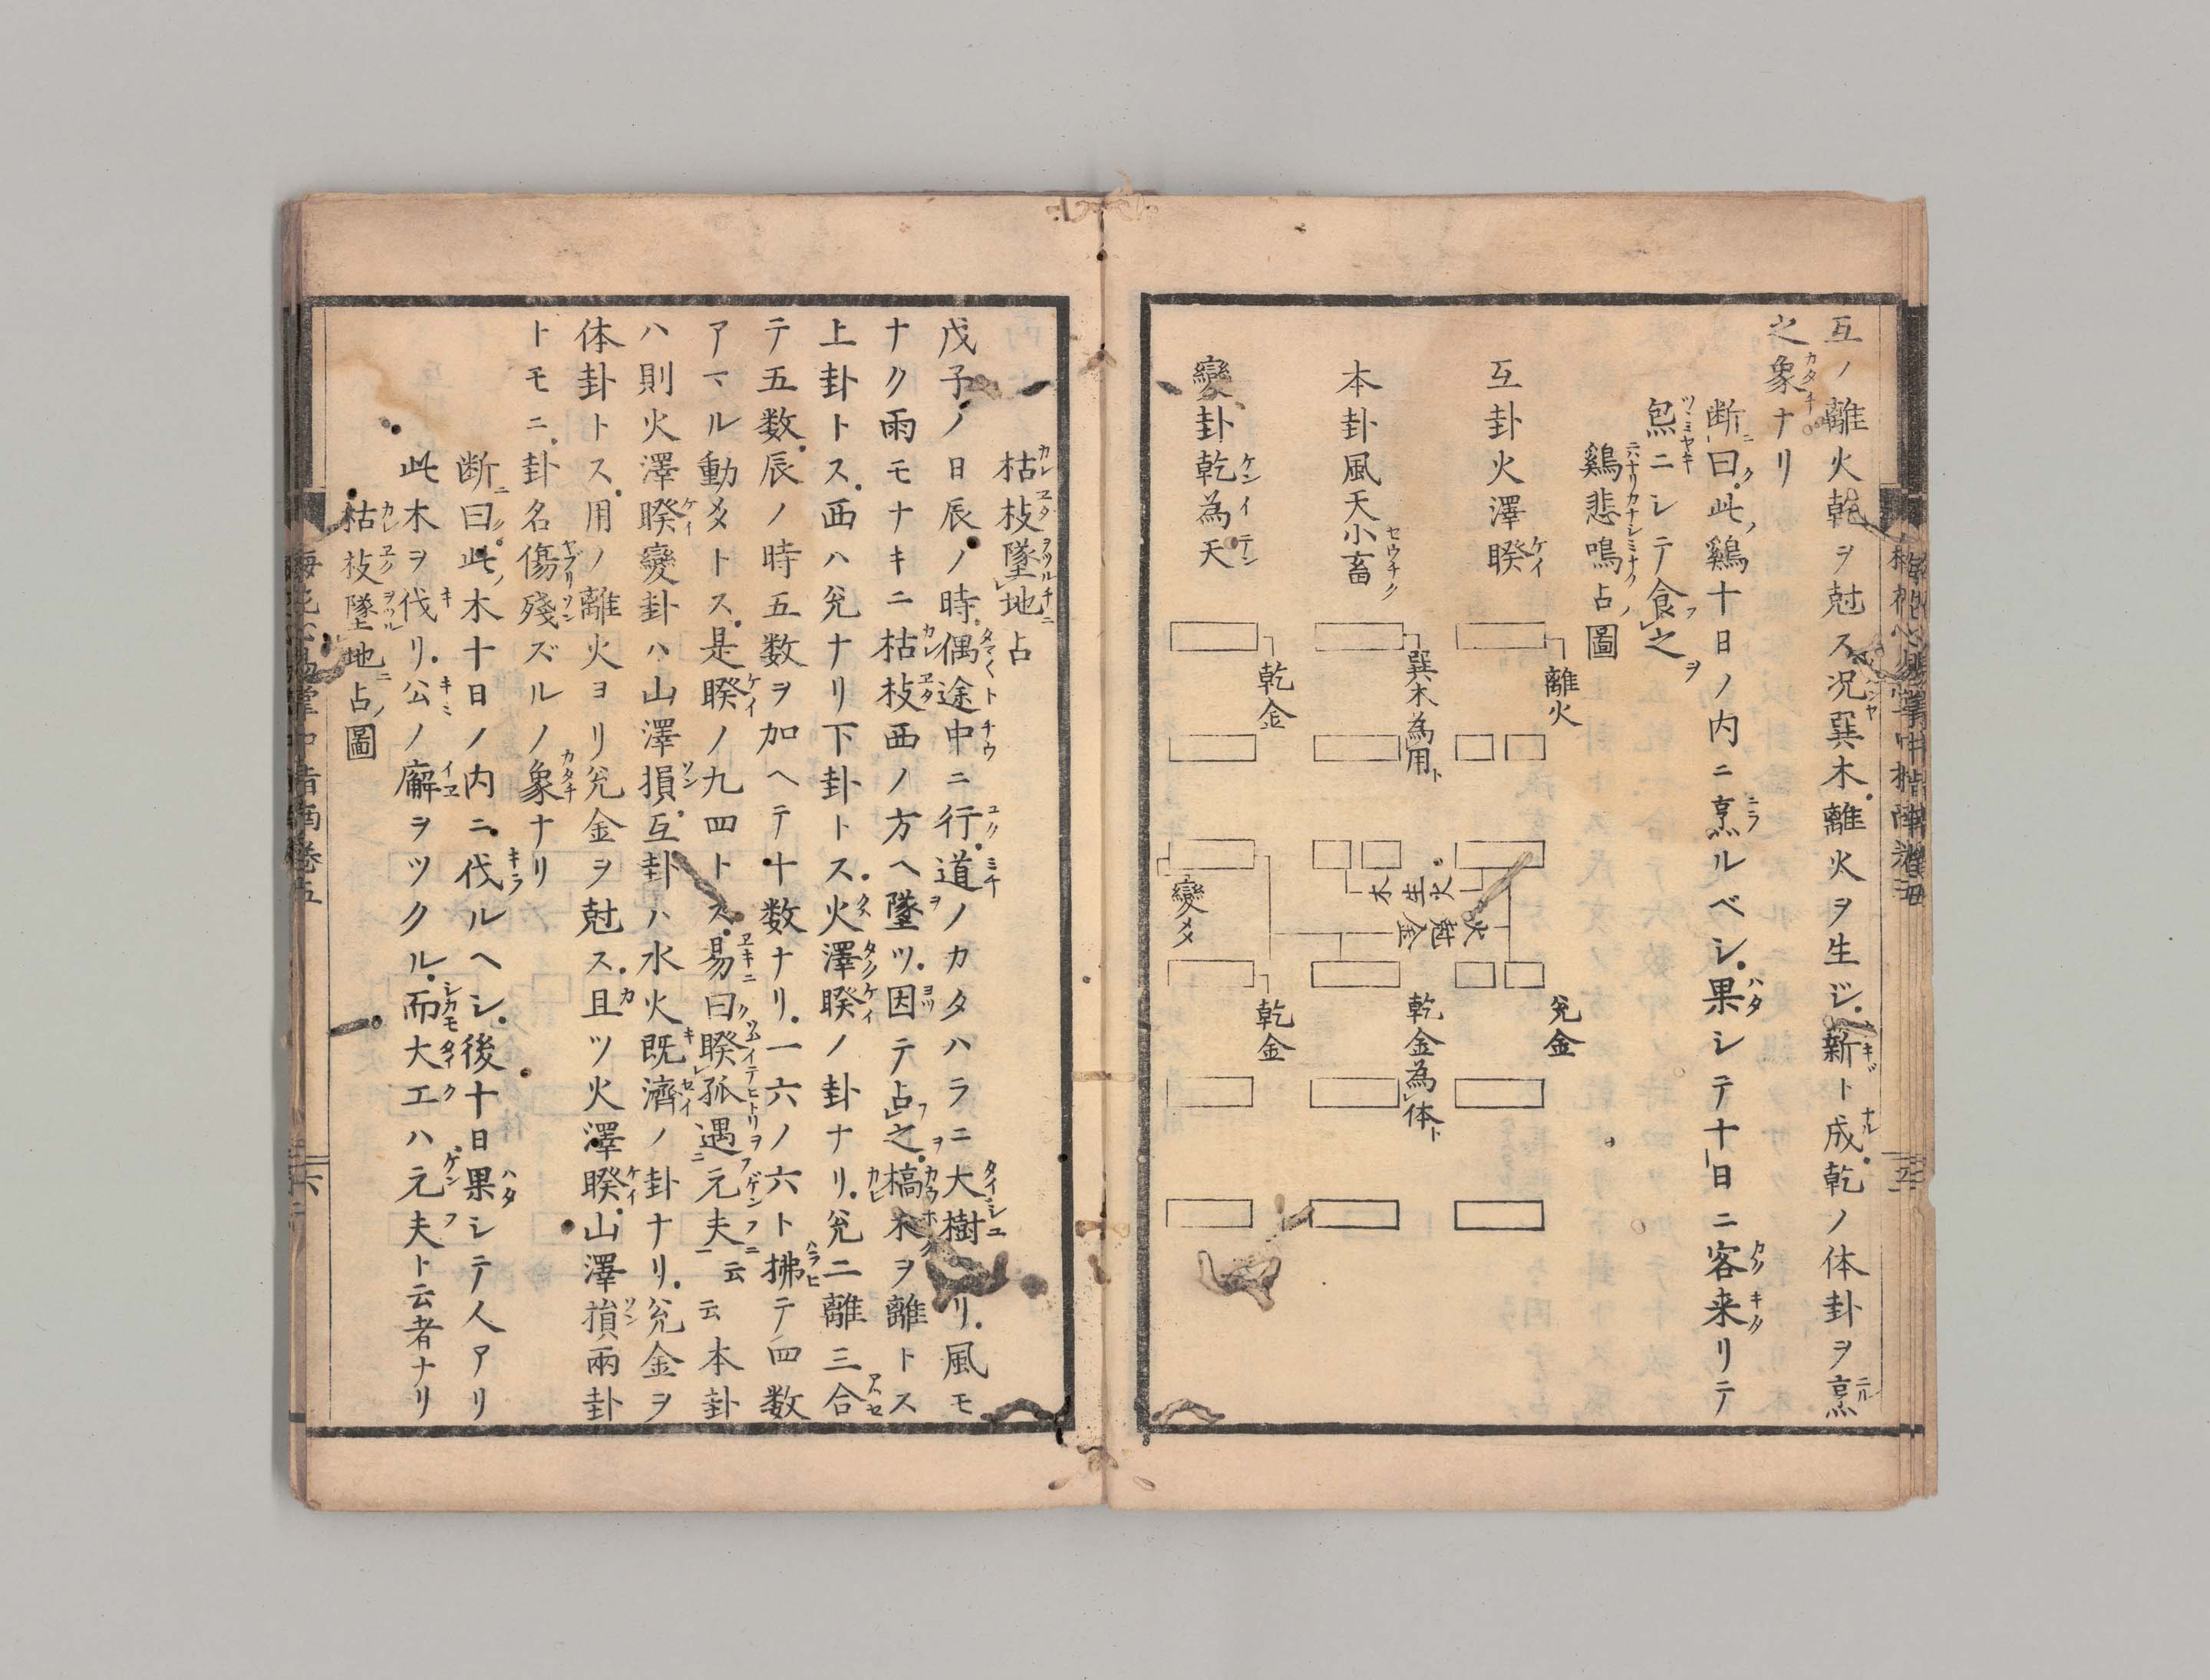 互ノ離火乾ヲ尅ス况巽木離火ヲ生ジ新ト成乾ノ体卦ヲ烹
之象ナリ
断曰此鷄十日ノ内ニ烹ルベシ果シテ十日ニ客来リテ
炰ニシテ食之
鷄悲鳴占圖
互卦火澤睽
離火
兊金
火尅金
火生木
本卦風天小畜
巽木為用
乾金為体
變卦乾為天
乾金
變メ
乾金
枯枝墜地占
戊子ノ日辰ノ時偶途中ニ行道ノカタハラニ大樹リ風モ
ナク雨モナキニ枯枝西ノ方ヘ墜ツ因テ占之槁木ヲ離トス
上卦トス西ハ兊ナリ下卦トス火澤睽ノ卦ナリ兊二離三合
テ五数辰ノ時五数ヲ加ヘテ十数ナリ一六ノ六ト拂テ四数
アマル動爻トス是睽ノ九四トス易曰睽孤遇元夫云云本卦
ハ則火澤睽變卦ハ山澤損互卦ハ水火既濟ノ卦ナリ兊金ヲ
体卦トス用ノ離火ヨリ兊金ヲ尅ス且ツ火澤睽山澤損兩卦
トモニ卦名傷殘ズルノ象ナリ
断曰此木十日ノ内ニ伐ルヘシ後十日果シテ人アリ
此木ヲ伐リ公ノ廨ヲツクル而大工ハ元夫ト云者ナリ
枯枝墜地占圖
梅花心易掌中指南巻五
六